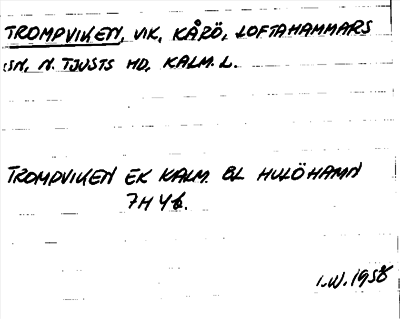 TROMPVIKEN, VIK, KÅRÖ, LOFTAHAMMARS
SN, N. TJUSTS HD, KALM. L.
TROMPVIKEN EK KALM. BL HULÖHAMN
7H 4b.
I.W. 1958